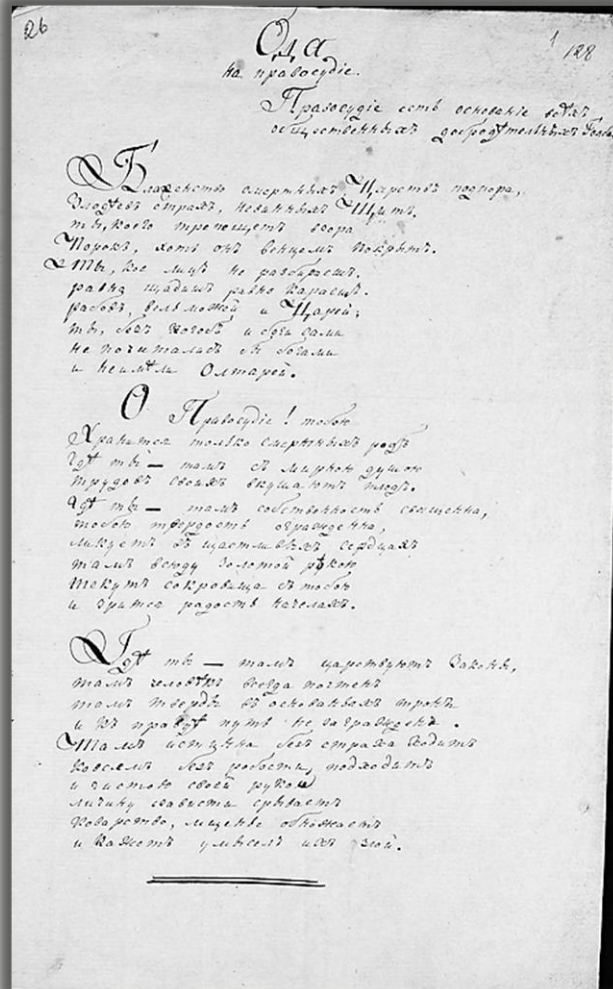 26
1
128
Ода
на правосудіе.
Правосудіе есть основаніе всѣхъ
общественныхъ добродѣтельныхъ
Блаженство смертныхъ, Царствъ подпора,
Злодѣевъ страхъ, невинныхъ Щитъ.
ты, коего трепещетъ взора
Порокъ, хоть онъ венцемъ покрытъ.
Ты, кое лицъ не разбираешъ.
равно щадишъ равно караешъ.
рабовъ, вельможей и Царей;
ты, безъ когобъ и боги сами
не почитались бъ богами
и неимѣли Олтарей.
О Правосудіе! тобою
Хранится только смертныхъ родъ
Гдѣ ты — тамъ съ мирною душою
трудовъ своихъ вкушаютъ плодъ.
Гдѣ ты — тамъ собственность священна,
тобою твердость огражденна,
ликуетъ въ щастливыхъ сердцахъ
тамъ всюду золотой рѣкою
текутъ сокровища съ тобою
и зрится радость начелахъ.
Гдѣ ты — тамъ царствуютъ Законы,
тамъ человѣкъ всегда почтенъ
тамъ тверды въ основаньяхъ троны
и къ правдѣ путь не загражденъ.
Тамъ истинна безъ страха ходитъ
ковсемъ безъ робости, подходитъ
и чистою своей рукой
личину зависти срываетъ
коварство, мщенье обнажаетъ
и кажетъ умыселъ ихъ злой.